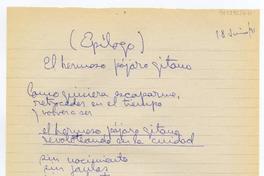 (Epílogo)
El hermoso pájaro gitano
Como quisiera escaparme,
retroceder en el tiempo
y volver a ser
el hermoso pájaro gitano
revoloteando en la ciudad
sin nacimiento
sin jaulas